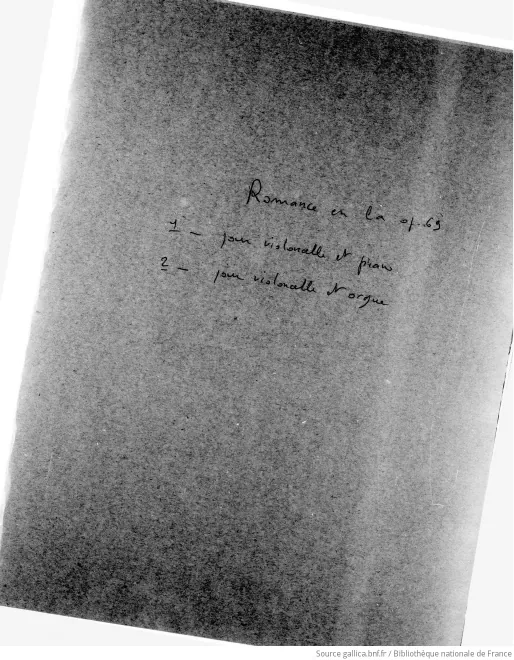 Romance en la op. 69
1 - pour violoncelle et piano
2 - pour violoncelle et orgue
Source gallica.bnf.fr / Bibliothèque nationale de France